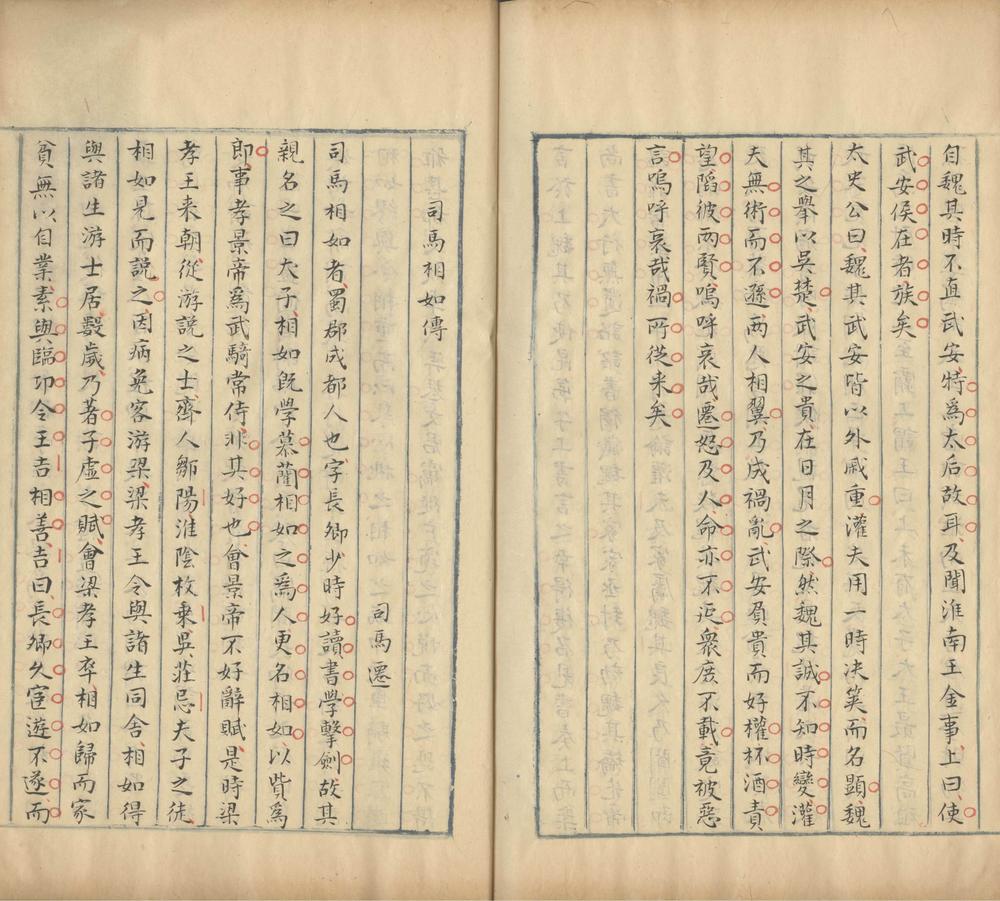 自魏其時不直武安特爲太后故耳及聞淮南王金事上曰使
武安侯在者族矣
太史公曰魏其武安皆以外戚重灌夫用一時決筴而名顯魏
其之舉以吳楚武安之貴在日月之際然魏其誠不知時變灌
夫無術而不遜兩人相翼乃成禍亂武安負貴而好權杯酒責
望陷彼兩賢嗚呼哀哉遷怒及人命亦不延衆庶不載竟被惡
言嗚呼哀哉禍所從来矣
司馬相如傳
司馬遷
司馬相如者蜀郡成都人也字長卿少時好讀書學擊劍故其
親名之曰犬子相如既學慕藺相如之爲人更名相如以貲爲
郎事孝景帝爲武騎常侍非其好也會景帝不好辭賦是時梁
孝王来朝從游說之士齊人鄒陽淮陰枚乗吳莊忌夫子之徒
相如見而說之因病免客游梁梁孝王令與諸生同舍相如得
與諸生游士居數歲乃著子虛之賦會梁孝王卒相如歸而家
貧無以自業素與臨卭令王吉相善吉曰長卿久宦遊不遂而